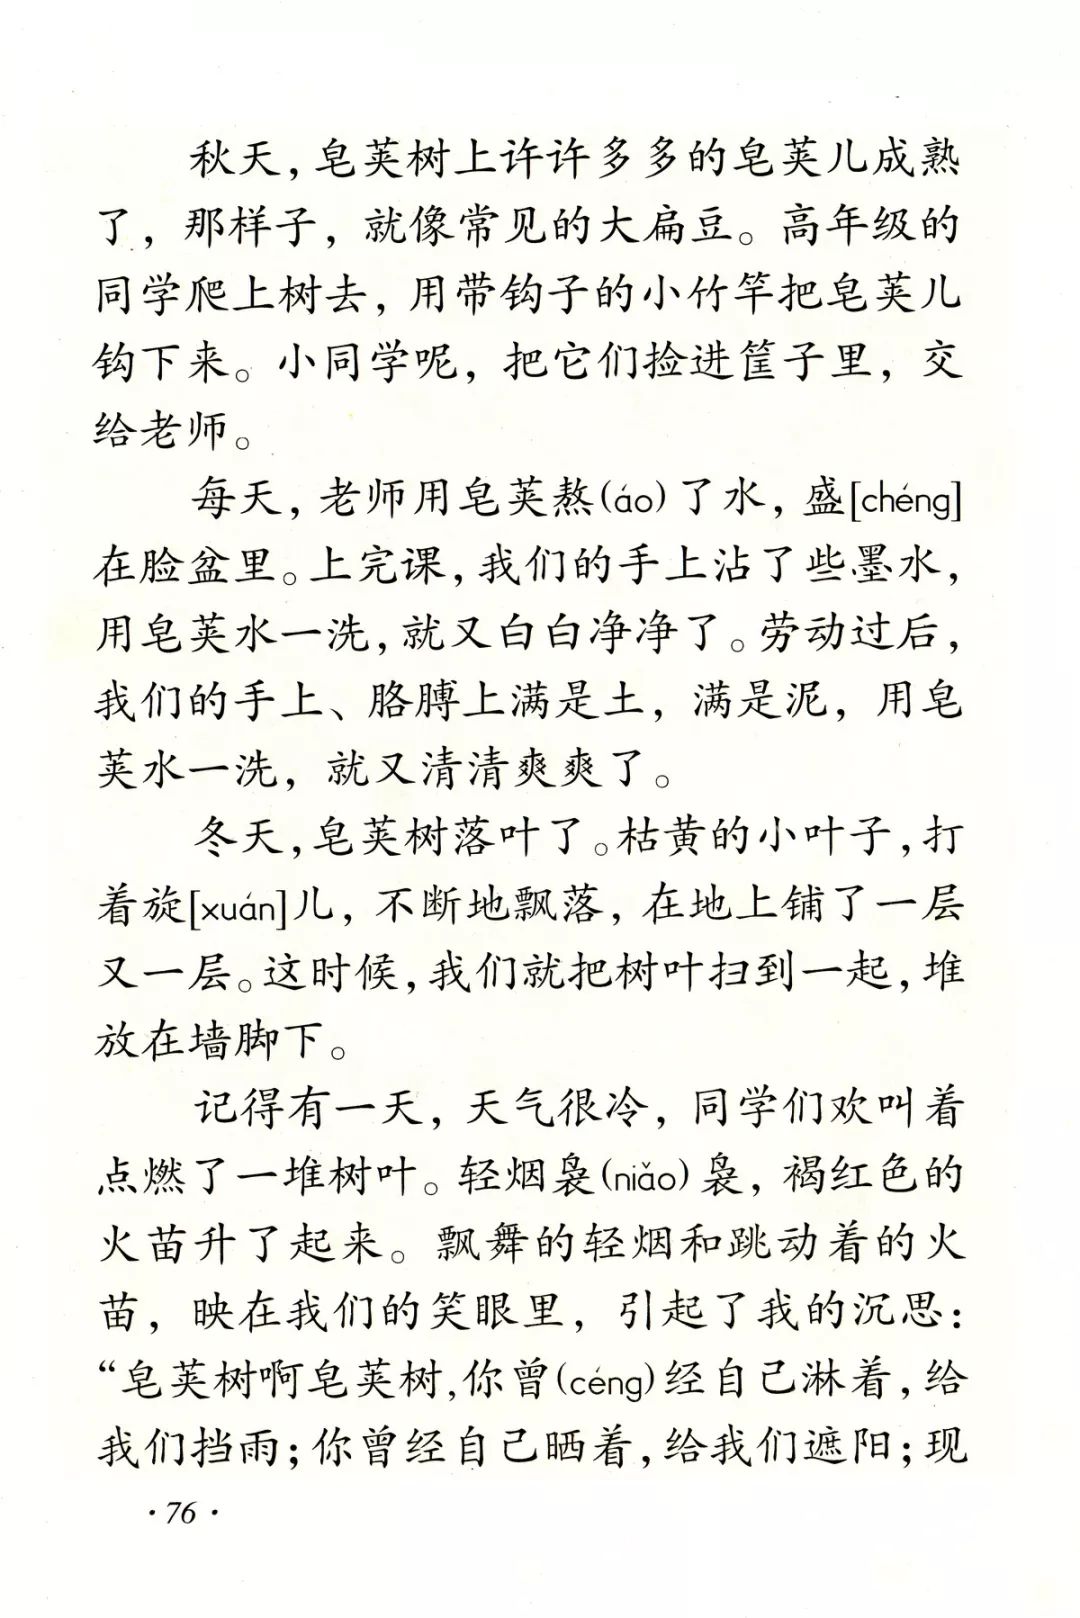 秋天，皂荚树上许许多多的皂荚儿成熟
了，那样子，就像常见的大扁豆。高年级的
同学爬上树去，用带钩子的小竹竿把皂荚儿
钩下来。小同学呢，把它们捡进筐子里，交
给老师。
每天，老师用皂荚熬(áo)了水，盛[chéng]
在脸盆里。上完课，我们的手上沾了些墨水，
用皂荚水一洗，就又白白净净了。劳动过后，
我们的手上、胳膊上满是土，满是泥，用皂
荚水一洗，就又清清爽爽了。
冬天，皂荚树落叶了。枯黄的小叶子，打
着旋[xuán]儿，不断地飘落，在地上铺了一层
又一层。这时候，我们就把树叶扫到一起，堆
放在墙脚下。
记得有一天，天气很冷，同学们欢叫着
点燃了一堆树叶。轻烟袅(niǎo)袅，褐红色的
火苗升了起来。飘舞的轻烟和跳动着的火
苗，映在我们的笑眼里，引起了我的沉思：
“皂荚树啊皂荚树，你曾(céng)经自己淋着，给
我们挡雨；你曾经自己晒着，给我们遮阳；现
·76·